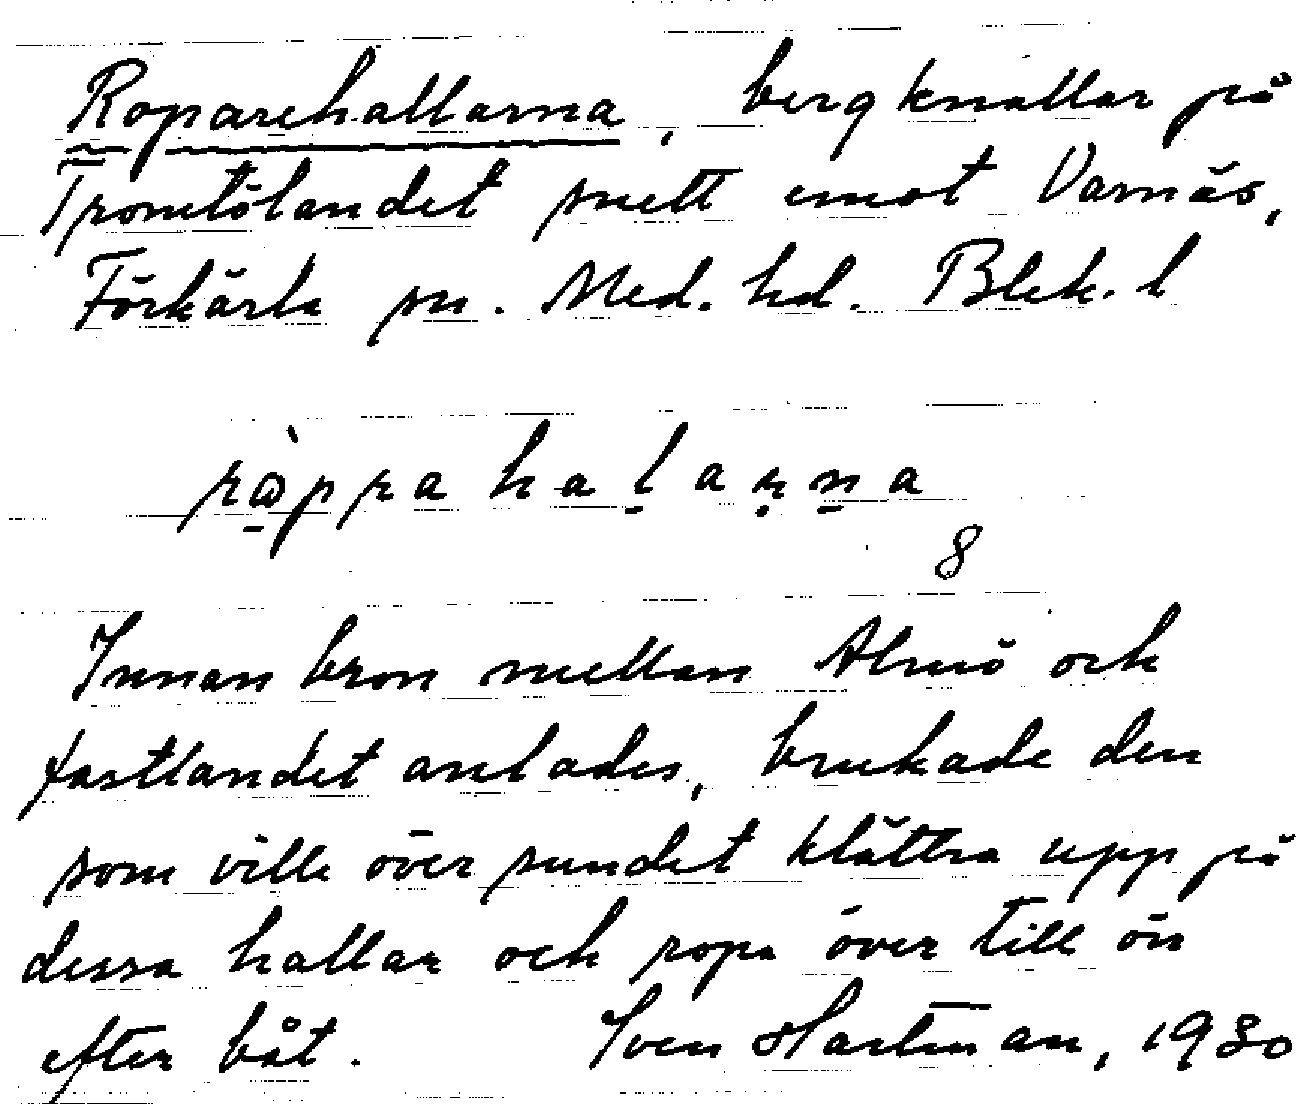 Roparehallarna, bergknallar på
Tromtölandet snett emot Varnäs,
Förkärla sn. Med. hd. Blek. l
Innan bron mellan Almö och
fastlandet anlades, brukade den
som ville över sundet klättra upp på
dessa hallar och ropa över till ön
efter båt. Sven Hartman, 1930